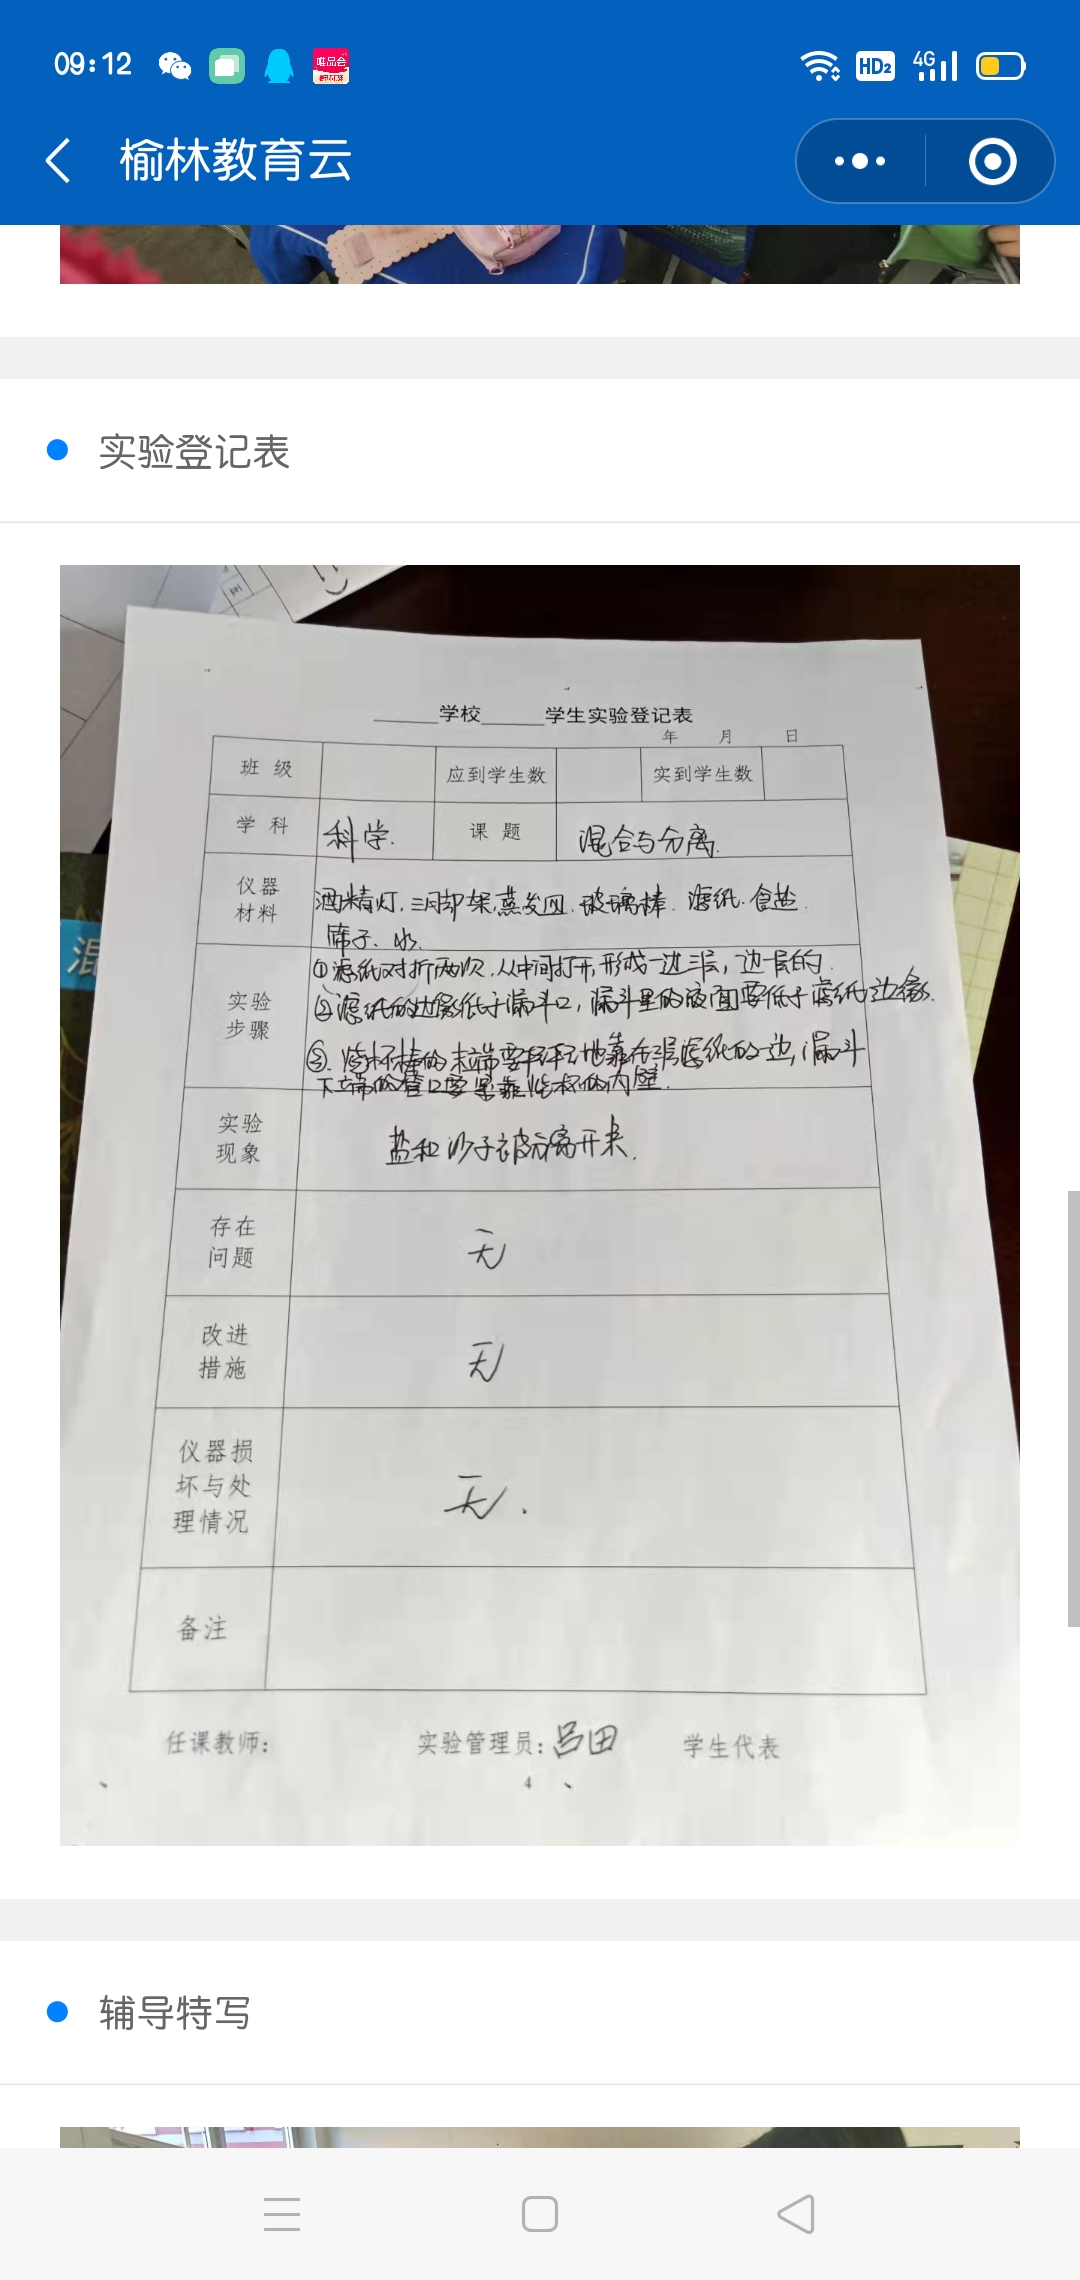 09:12
唯品会
HD2
4G
榆林教育云
实验登记表
______学校______学生实验登记表
年 月 日
班 级 应到学生数 实到学生数
学 科 科学. 课 题 混合与分离.
仪器材料 酒精灯.三角架.蒸发皿.玻璃棒.滤纸.食盐.
筛子、水.
实验步骤 ①滤纸对折两次.从中间打开,形成一边三层,边一层的.
②滤纸的边缘低于漏斗口,漏斗里的液面要低于滤纸边缘.
③.玻璃棒的末端要轻轻地靠在三层滤纸的一边,漏斗
下端的管口要紧靠烧杯的内壁.
实验现象 盐和沙子被分离开来.
存在问题 无
改进措施 无
仪器损坏与处理情况 无.
备注
任课教师: 实验管理员:吕田 学生代表
4
辅导特写